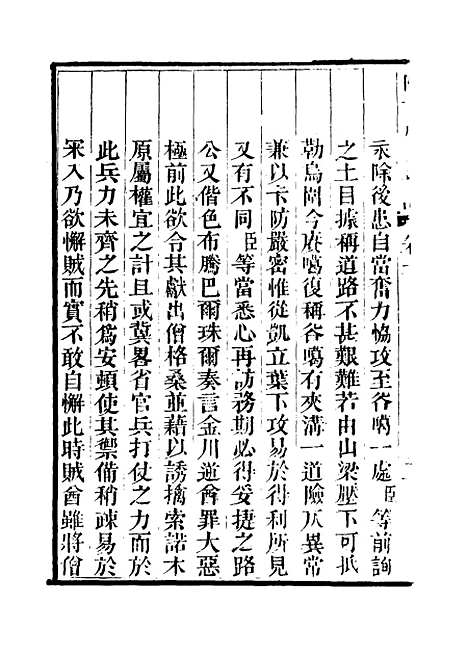 永除後患自當奮力協攻至谷噶一處臣等前詢
之土目據稱道路不甚艱難若由山梁壓下可抵
勒烏圍今賡噶復稱谷噶有夾溝一道險仄異常
兼以卡防嚴密惟從凱立葉下攻易於得利所見
又有不同臣等當悉心再訪務期必得妥捷之路
公又偕色布騰巴爾珠爾奏言金川逆酋罪大惡
極前此欲令其獻出僧格桑並藉以誘擒索諾木
原屬權宜之計且或冀畧省官兵打仗之力而於
此兵力未齊之先稍爲安頓使其禦備稍疎易於
罙入乃欲懈賊而實不敢自懈此時賊酋雖將僧